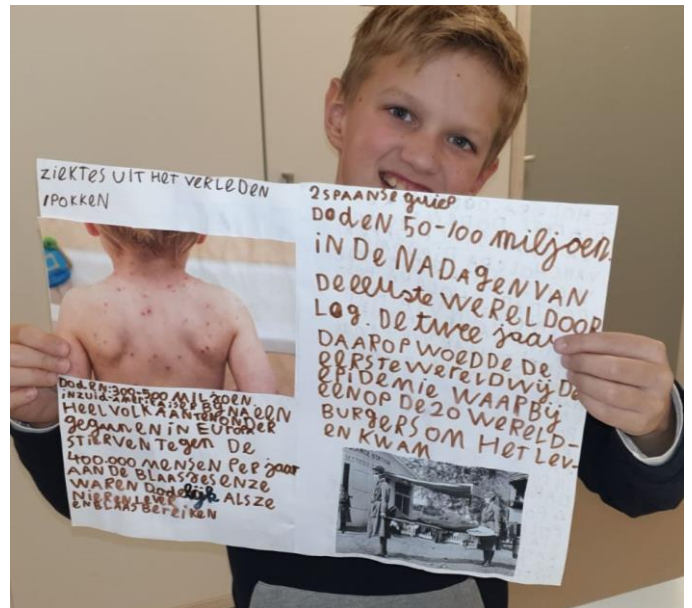 ZIEKTES UIT HET VERLEDEN
1POKKEN
DODEN:300-500 MILJOEN.
INZUID-AMERIKA GING BIJNA EEN
HEEL VOLK AAN TENONDER
GEGINNEN IN EUROPA
STIERVEN TEGEN DE
400.000 MENSEN PER JAAR
AAN DE BLAASJES ENZE
WAREN DODELIJK ALSZE
NIEREN LEVER
EN BLAAS BEREIKEN
2SPAANSE GRIEP
DODEN 50-100 MILJOEN.
IN DE NADAGEN VAN
DE EERSTE WERELDOOR
LOG. DE TWEE JAAR
DAAROP WOEDDE DE
EERSTE WERELDWIJDE
EPIDEMIE WAARBIJ
EEN OP DE 20 WERELD-
BURGERS OM HET LEV-
EN KWAM